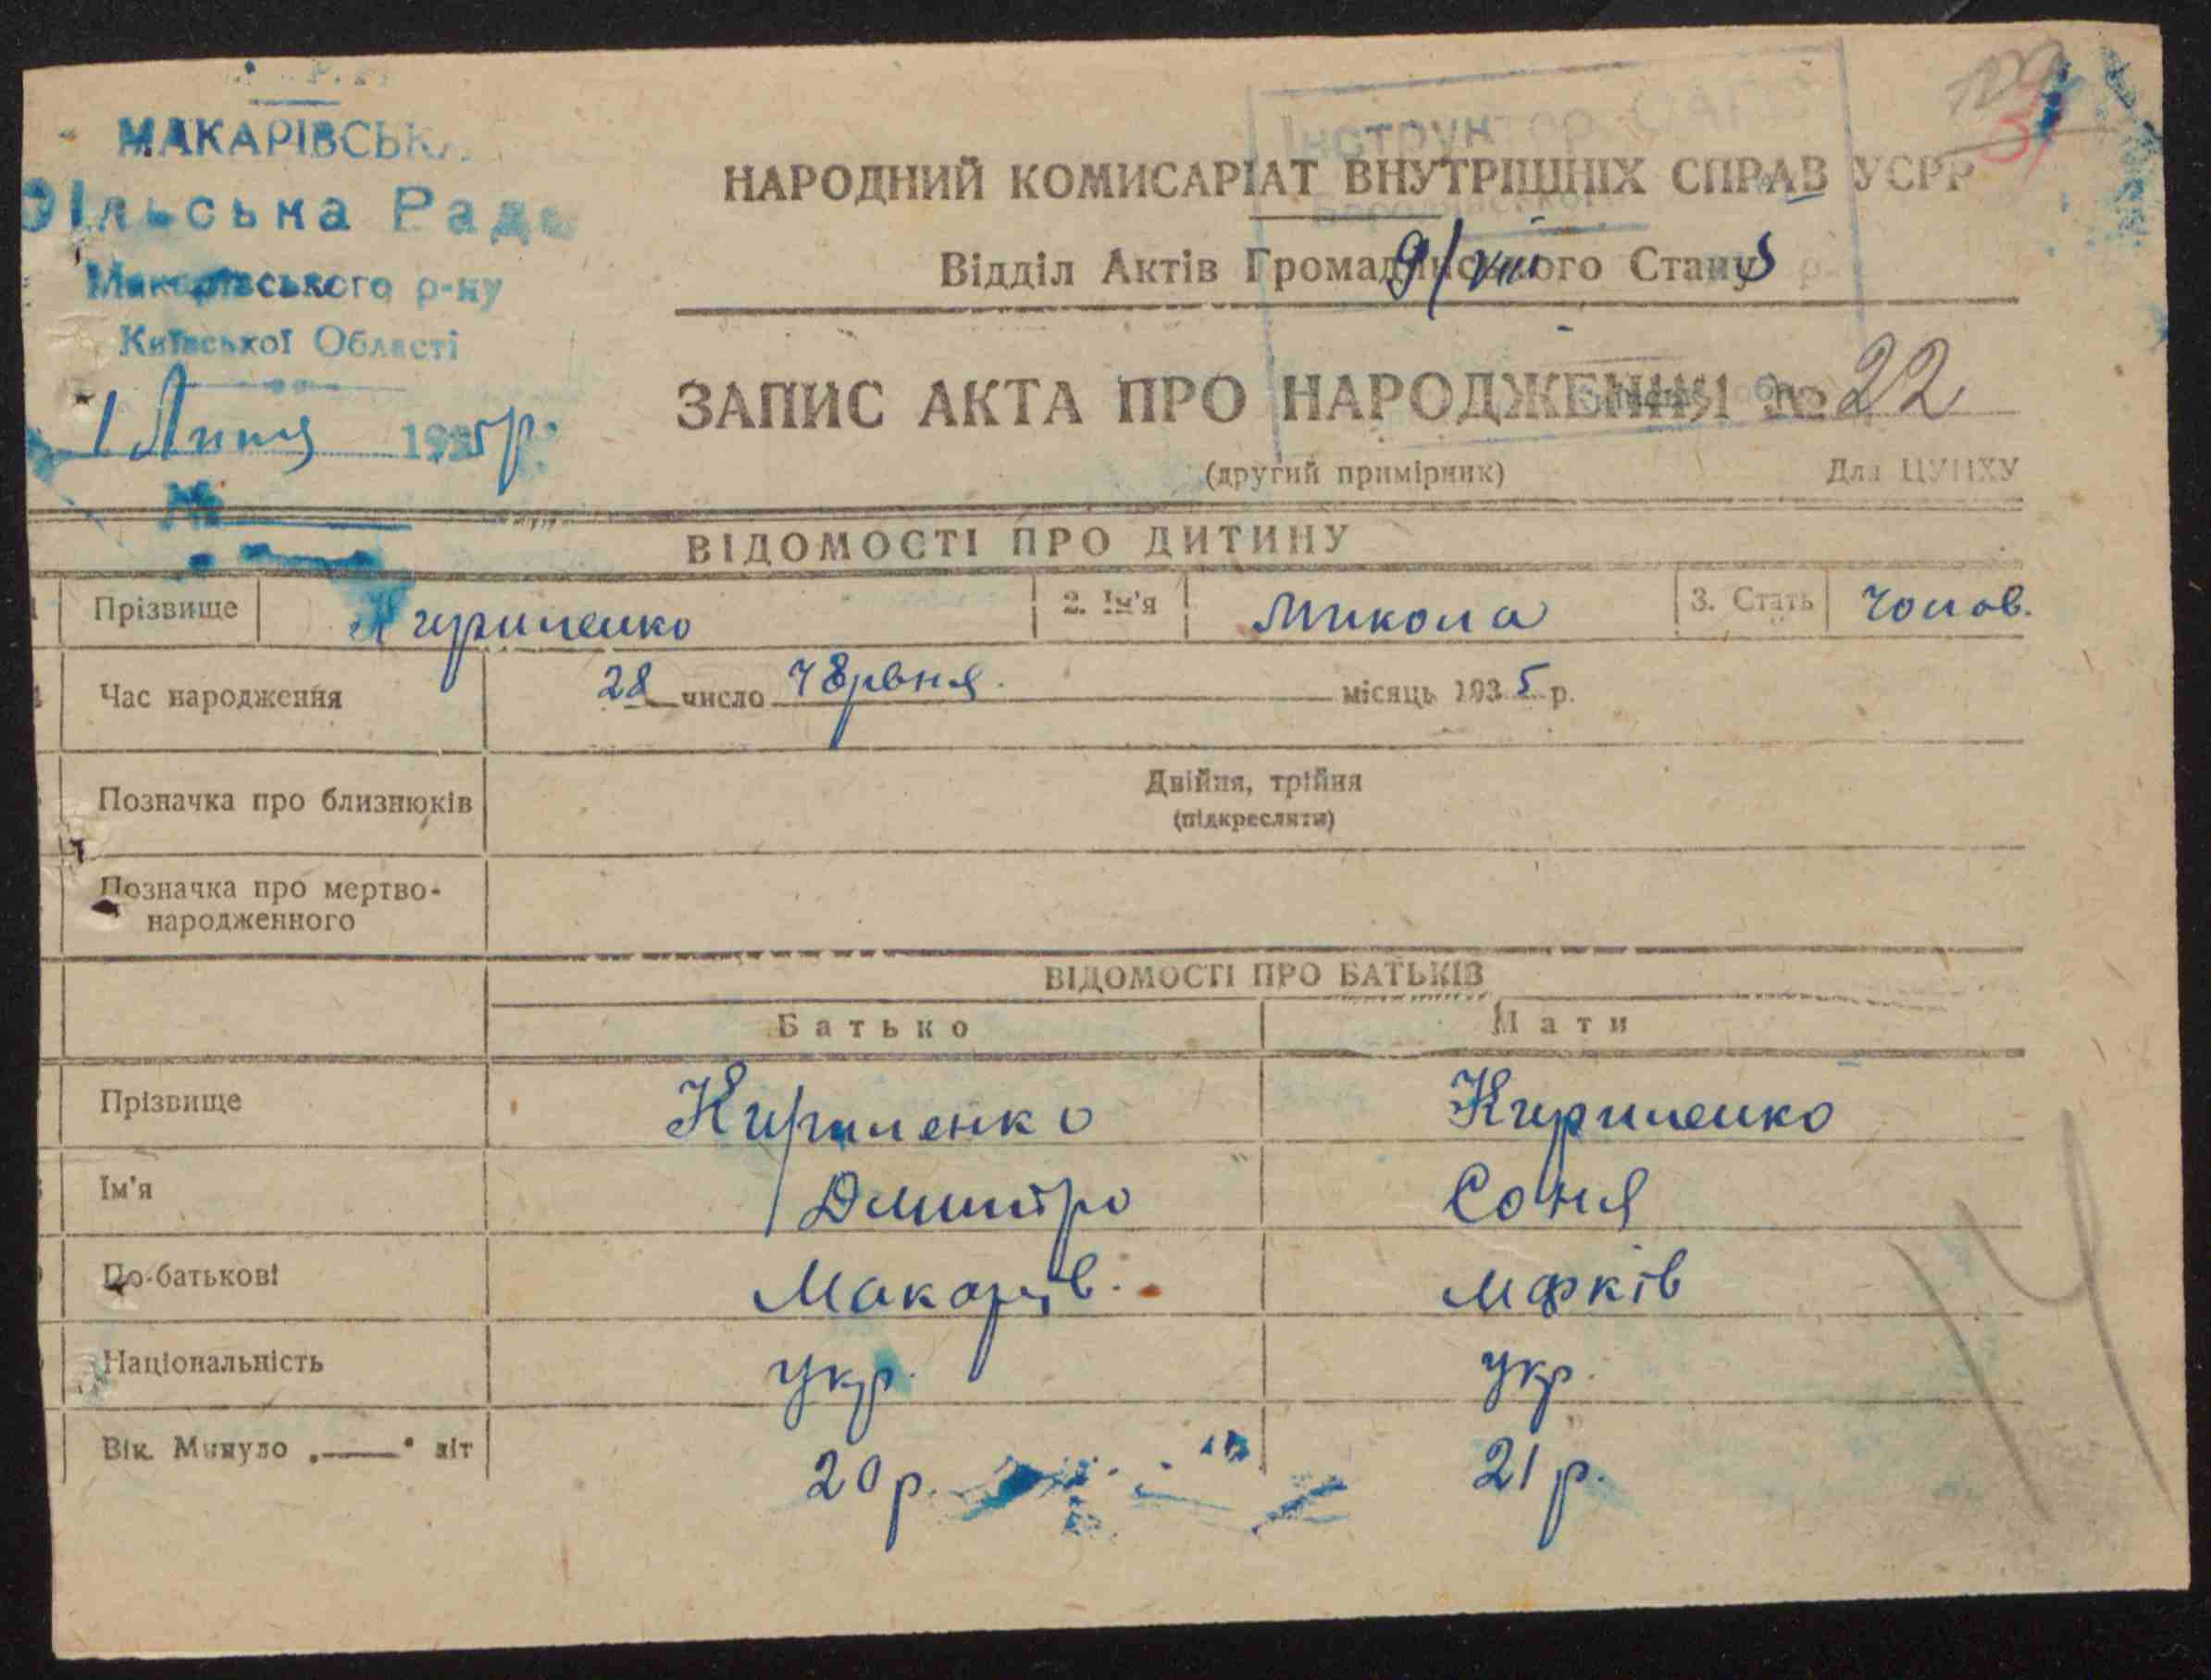 МАКАРІВСЬКА
Сільська Рада
Макарівського р-ну
Київської Області
1 Липня 1935 р.
№
Інструктор
НАРОДНИЙ КОМИСАРІАТ ВНУТРІШНІХ СПРАВ УСРР
Відділ Актів Громадянського Стану
9/VIII 5
ЗАПИС АКТА ПРО НАРОДЖЕННЯ № 22
(другий примірник) Для ЦУНХУ
ВІДОМОСТІ ПРО ДИТИНУ
Прізвище Кириленко 2. Ім'я Микола 3. Стать Чолов.
Час народження 28 число Червня. місяць 1935 р.
Позначка про близнюків Двійня, трійня
(підкреслити)
Позначка про мертво-
народженного
ВІДОМОСТІ ПРО БАТЬКІВ
Батько Мати
Прізвище Кириленко Кириленко
Ім'я Дмитро Соня
По-батькові Макарів. Марків
Національність укр. укр.
Вік. Минуло „—“ літ 20 р. 21 р.
14